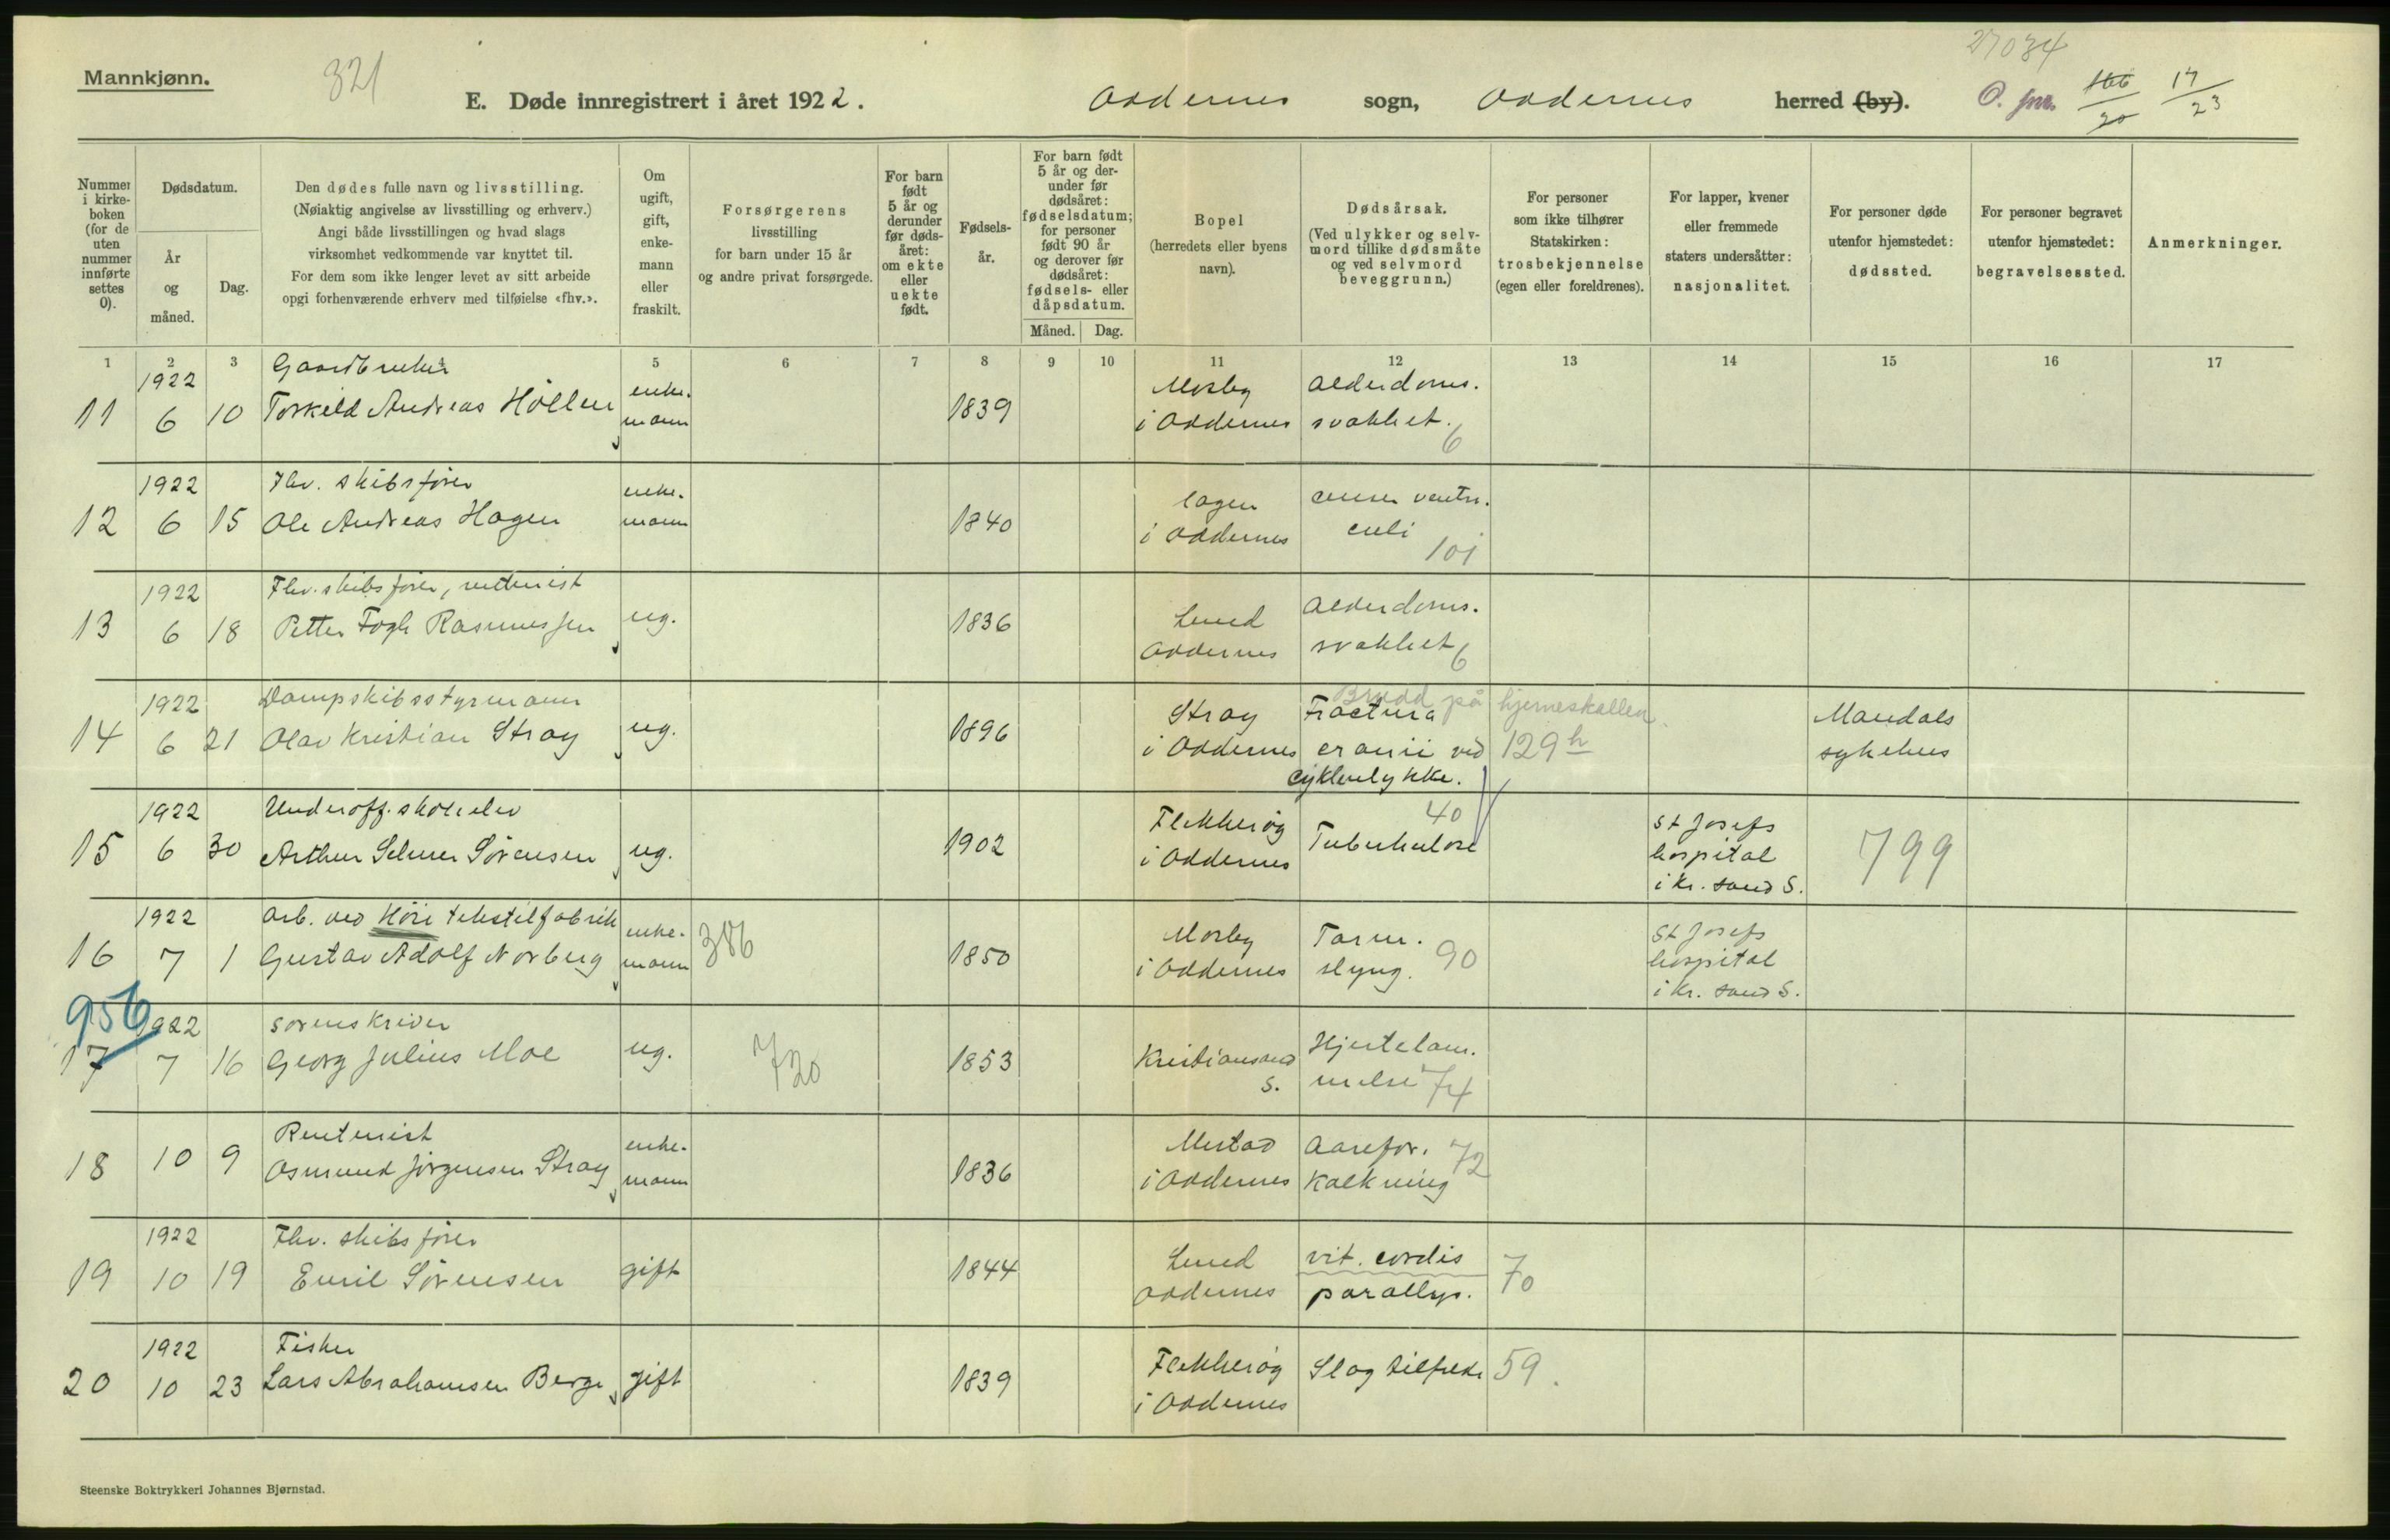 27034
Mannkjønn.
321
E. Døde innregistrert i året 1922.
Oddernes sogn, Oddernes herred (by).
O. jnr. 166/20 17/23
Nummer i kirkeboken (for de uten nummer innførte settes 0).
Dødsdatum.
År og måned.
Dag.
Den dødes fulle navn og livsstilling.
(Nøiaktig angivelse av livsstilling og erhverv.)
Angi både livsstillingen og hvad slags
virksomhet vedkommende var knyttet til.
For dem som ikke lenger levet av sitt arbeide
opgi forhenværende erhverv med tilføielse «fhv.».
Om ugift, gift, enkemann eller fraskilt.
Forsørgerens
livsstilling
for barn under 15 år
og andre privat forsørgede.
For barn født 5 år og derunder før dødsåret: om ekte eller uekte født.
Fødselsår.
For barn født 5 år og derunder før dødsåret: fødselsdatum; for personer født 90 år og derover før dødsåret: fødsels- eller dåpsdatum.
Måned. Dag.
Bopel
(herredets eller byens
navn).
Dødsårsak.
(Ved ulykker og selvmord tillike dødsmåte og ved selvmord beveggrunn.)
For personer
som ikke tilhører
Statskirken:
trosbekjennelse
(egen eller foreldrenes).
For lapper, kvener
eller fremmede
staters undersåtter:
nasjonalitet.
For personer døde
utenfor hjemstedet:
dødssted.
For personer begravet
utenfor hjemstedet:
begravelsessted.
Anmerkninger.
1 2 3 4 5 6 7 8 9 10 11 12 13 14 15 16 17
1922 Gaardbruker enke- Mosby Alderdoms-
11 6 10 Torkild Andreas Höllen mann 1839 i Oddernes svakhet. 6
1922 Fhv. skibsfører enke- cancer ventri-
12 6 15 Ole Andreas Hagen mann 1840 i Oddernes culi 101
1922 Fhv. skibsfører, rentenist Alderdoms-
13 6 18 Petter Fogh Rasmussen ug. 1836 Lund Oddernes svakhet 6
1922 Dampskibsstyrmann Stray Fractura Brudd på hjerneskallen. Mandals
14 6 21 Olav Kristian Stray ug. 1896 i Oddernes cranii ved 129 h sykehus
cykkelulykke.
1922 Underoff. skoleelev Flekkerøy 40 St Josefs
15 6 30 Arthur Selmer Sørensen ug. 1902 i Oddernes Tuberkulose hospital 799
i Kr. sand S.
1922 Arb. ved Höie tekstilfabrik enke- 386 Mosby Tarm- St Josefs
16 7 1 Gustav Adolf Norberg mann 1850 i Oddernes slyng. 90 hospital
i Kr. sand S.
956
1922 sorenskriver Hjertelam-
17 7 16 Georg Julius Moe ug. 720 1853 Kristiansand S. melse 74
Rentenist enke- Mestad Aarefor- 72
18 10 9 Osmund Jørgensen Stray mann 1836 i Oddernes kalkning
1922 Fhv. skibsfører Lund vit. cordis
19 10 19 Emil Sørensen gift 1844 Oddernes paralys. 70
1922 Fisker Flekkerøy
20 10 23 Lars Abrahamsen Berge gift 1839 i Oddernes Slagtilfelde 59.
Steenske Boktrykkeri Johannes Bjørnstad.